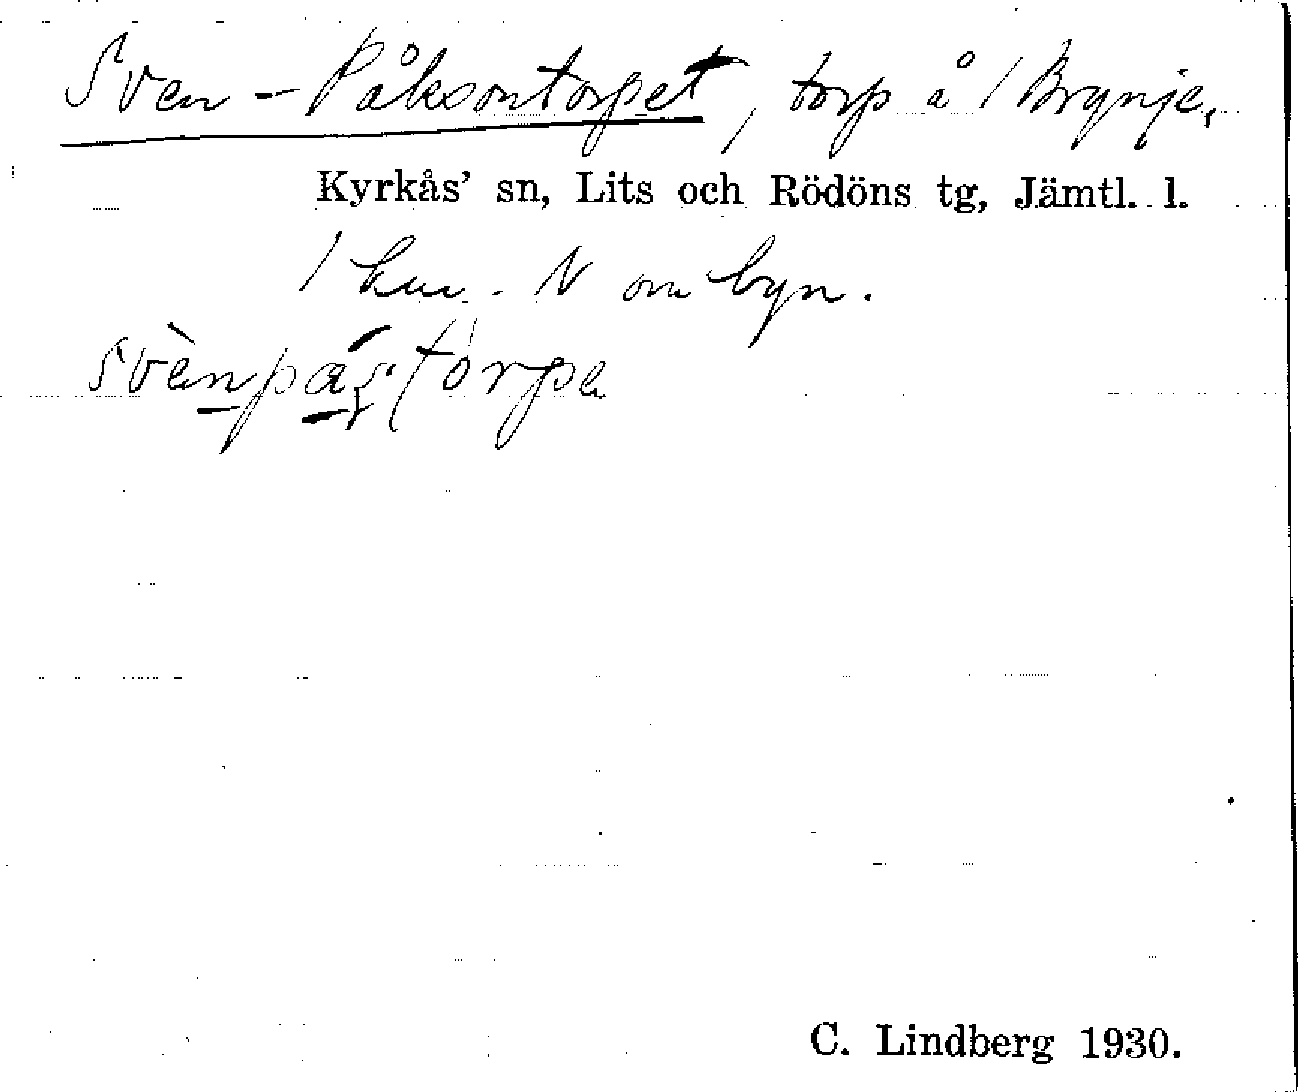 Sven-Påksontorpet, torp å / Brynje,
Kyrkås' sn, Lits och Rödöns tg, Jämtl. l.
1 km. N om byn.
C. Lindberg 1930.